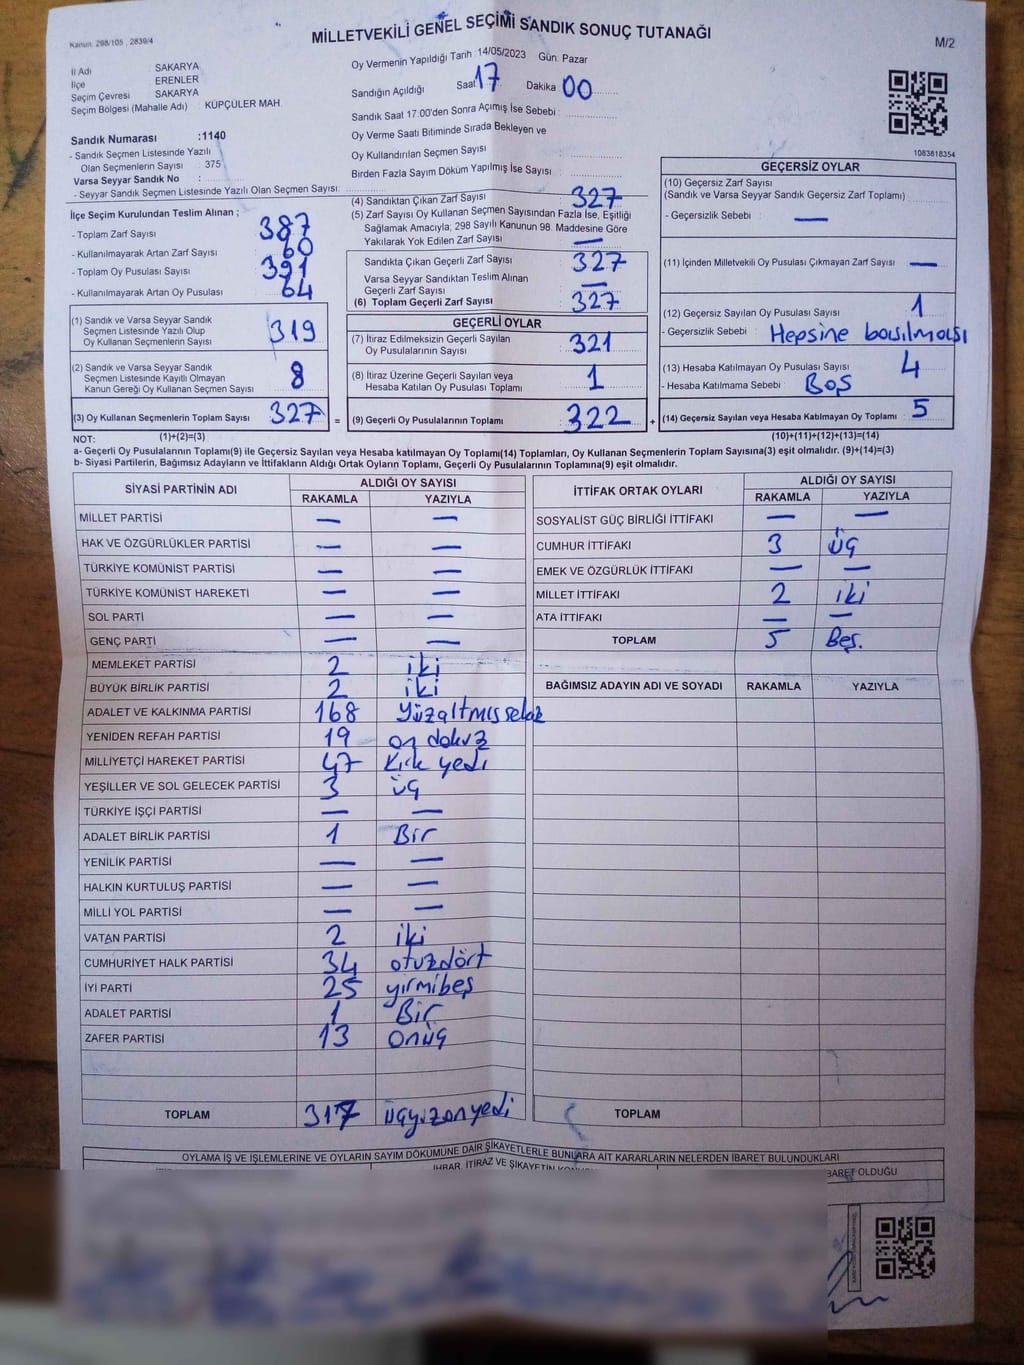 MİLLETVEKİLİ GENEL SEÇİMİ SANDIK SONUÇ TUTANAĞI
Kanun: 298/105 , 2839/4
M/2
İl Adı SAKARYA
İlçe ERENLER
Seçim Çevresi SAKARYA
Seçim Bölgesi (Mahalle Adı) : KÜPÇÜLER MAH.
Sandık Numarası :1140
- Sandık Seçmen Listesinde Yazılı
Olan Seçmenlerin Sayısı : 375
Varsa Seyyar Sandık No :
- Seyyar Sandık Seçmen Listesinde Yazılı Olan Seçmen Sayısı:
Oy Vermenin Yapıldığı Tarih : 14/05/2023 Gün: Pazar
Sandığın Açıldığı Saat 17 Dakika 00
Sandık Saat 17:00'den Sonra Açılmış İse Sebebi :
Oy Verme Saati Bitiminde Sırada Bekleyen ve
Oy Kullandırılan Seçmen Sayısı
Birden Fazla Sayım Döküm Yapılmış İse Sayısı :
1083618354
İlçe Seçim Kurulundan Teslim Alınan ;
- Toplam Zarf Sayısı : 387
- Kullanılmayarak Artan Zarf Sayısı : 60
- Toplam Oy Pusulası Sayısı : 391
- Kullanılmayarak Artan Oy Pusulası : 64
(1) Sandık ve Varsa Seyyar Sandık
Seçmen Listesinde Yazılı Olup
Oy Kullanan Seçmenlerin Sayısı : 319
(2) Sandık ve Varsa Seyyar Sandık
Seçmen Listesinde Kayıtlı Olmayan
Kanun Gereği Oy Kullanan Seçmen Sayısı : 8
(3) Oy Kullanan Seçmenlerin Toplam Sayısı : 327 =
(4) Sandıktan Çıkan Zarf Sayısı : 327
(5) Zarf Sayısı Oy Kullanan Seçmen Sayısından Fazla İse, Eşitliği
Sağlamak Amacıyla, 298 Sayılı Kanunun 98. Maddesine Göre
Yakılarak Yok Edilen Zarf Sayısı : —
Sandıkta Çıkan Geçerli Zarf Sayısı : 327
Varsa Seyyar Sandıktan Teslim Alınan
Geçerli Zarf Sayısı : —
(6) Toplam Geçerli Zarf Sayısı : 327
GEÇERLİ OYLAR
(7) İtiraz Edilmeksizin Geçerli Sayılan
Oy Pusulalarının Sayısı : 321
(8) İtiraz Üzerine Geçerli Sayılan veya
Hesaba Katılan Oy Pusulası Toplamı : 1
(9) Geçerli Oy Pusulalarının Toplamı : 322 +
GEÇERSİZ OYLAR
(10) Geçersiz Zarf Sayısı
(Sandık ve Varsa Seyyar Sandık Geçersiz Zarf Toplamı)
- Geçersizlik Sebebi : —
(11) İçinden Milletvekili Oy Pusulası Çıkmayan Zarf Sayısı : —
(12) Geçersiz Sayılan Oy Pusulası Sayısı : 1
- Geçersizlik Sebebi : Hepsine basılması
(13) Hesaba Katılmayan Oy Pusulası Sayısı : 4
- Hesaba Katılmama Sebebi : Boş
(14) Geçersiz Sayılan veya Hesaba Katılmayan Oy Toplamı : 5
NOT: (1)+(2)=(3) (10)+(11)+(12)+(13)=(14)
a- Geçerli Oy Pusulalarının Toplamı(9) ile Geçersiz Sayılan veya Hesaba katılmayan Oy Toplamı(14) Toplamları, Oy Kullanan Seçmenlerin Toplam Sayısına(3) eşit olmalıdır. (9)+(14)=(3)
b- Siyasi Partilerin, Bağımsız Adayların ve İttifakların Aldığı Ortak Oyların Toplamı, Geçerli Oy Pusulalarının Toplamına(9) eşit olmalıdır.
SİYASİ PARTİNİN ADI ALDIĞI OY SAYISI
RAKAMLA YAZIYLA
MİLLET PARTİSİ — —
HAK VE ÖZGÜRLÜKLER PARTİSİ — —
TÜRKİYE KOMÜNİST PARTİSİ — —
TÜRKİYE KOMÜNİST HAREKETİ — —
SOL PARTİ — —
GENÇ PARTİ — —
MEMLEKET PARTİSİ 2 iki
BÜYÜK BİRLİK PARTİSİ 2 iki
ADALET VE KALKINMA PARTİSİ 168 Yüzaltmışsekiz
YENİDEN REFAH PARTİSİ 19 on dokuz
MİLLİYETÇİ HAREKET PARTİSİ 47 Kırk yedi
YEŞİLLER VE SOL GELECEK PARTİSİ 3 üç
TÜRKİYE İŞÇİ PARTİSİ — —
ADALET BİRLİK PARTİSİ 1 Bir
YENİLİK PARTİSİ — —
HALKIN KURTULUŞ PARTİSİ — —
MİLLİ YOL PARTİSİ — —
VATAN PARTİSİ 2 iki
CUMHURİYET HALK PARTİSİ 34 otuzdört
İYİ PARTİ 25 yirmibeş
ADALET PARTİSİ 1 Bir
ZAFER PARTİSİ 13 onüç
TOPLAM 317 üçyüzonyedi
İTTİFAK ORTAK OYLARI ALDIĞI OY SAYISI
RAKAMLA YAZIYLA
SOSYALİST GÜÇ BİRLİĞİ İTTİFAKI — —
CUMHUR İTTİFAKI 3 üç
EMEK VE ÖZGÜRLÜK İTTİFAKI — —
MİLLET İTTİFAKI 2 iki
ATA İTTİFAKI — —
TOPLAM 5 Beş.
BAĞIMSIZ ADAYIN ADI VE SOYADI RAKAMLA YAZIYLA
TOPLAM
OYLAMA İŞ VE İŞLEMLERİNE VE OYLARIN SAYIM DÖKÜMÜNE DAİR ŞİKAYETLERLE BUNLARA AİT KARARLARIN NELERDEN İBARET BULUNDUKLARI
İHBAR, İTİRAZ VE ŞİKAYETİN
BARET OLDUĞU